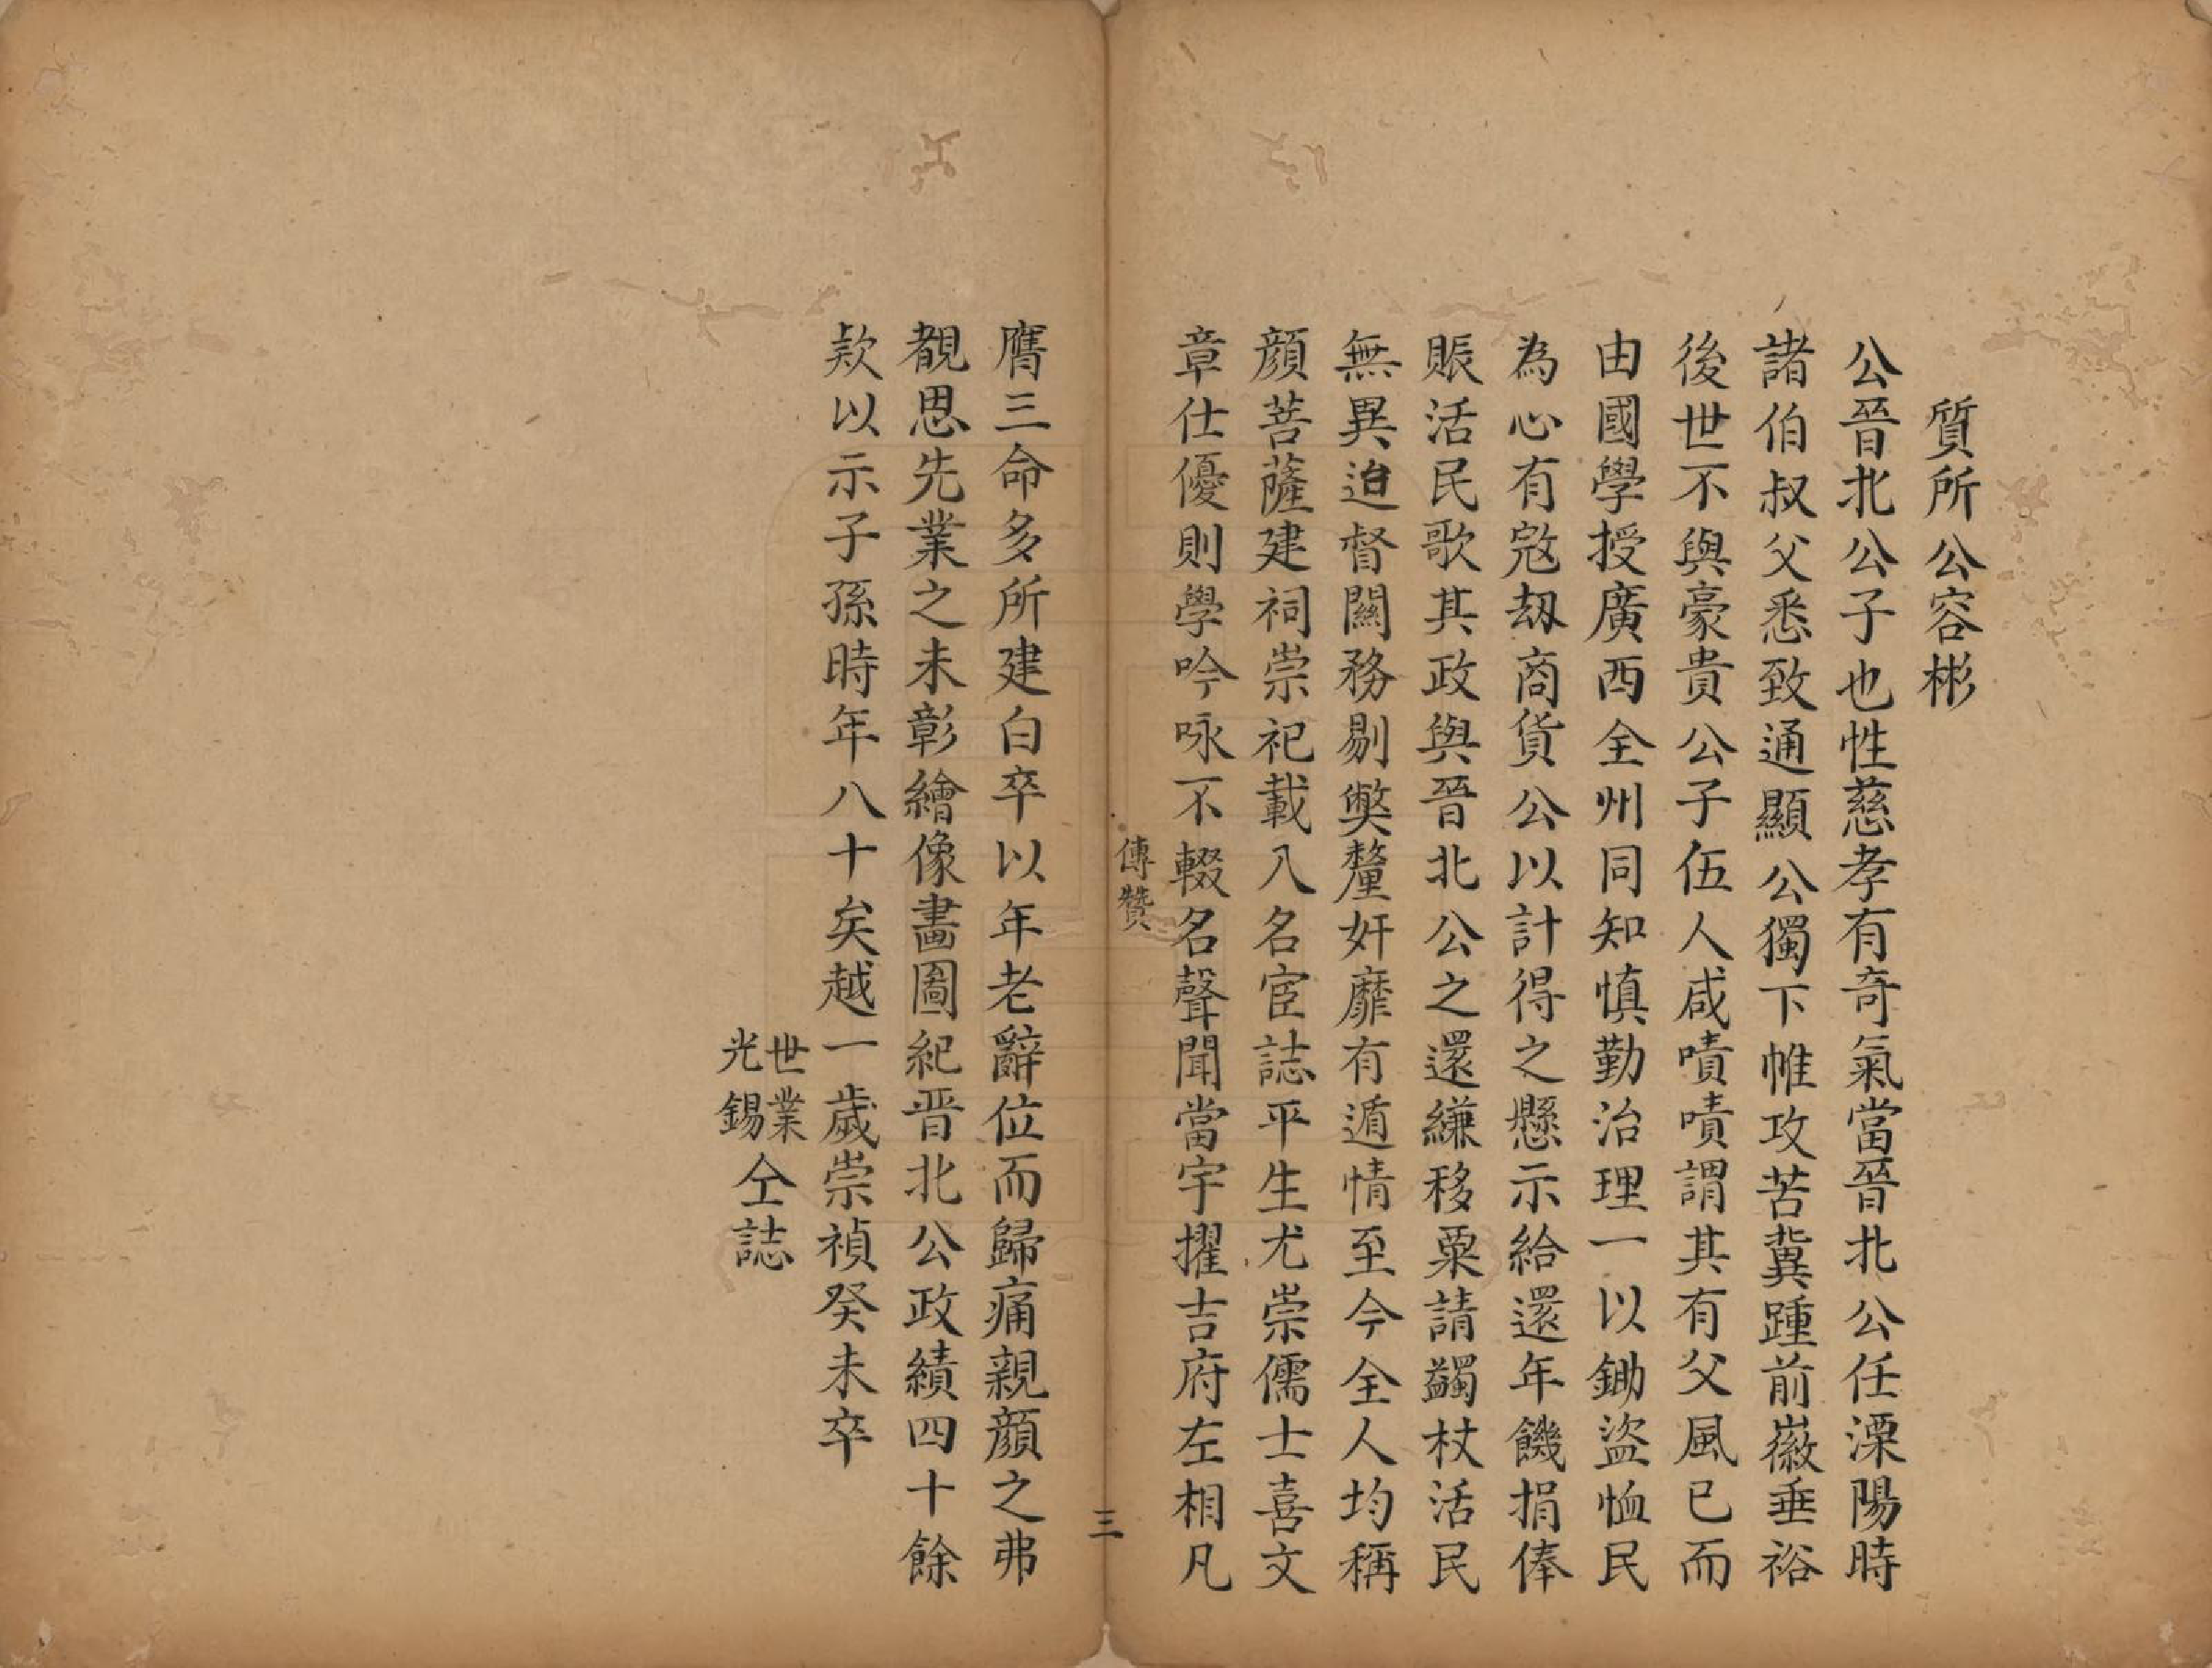 質所公容彬
公晉北公子也性慈孝有奇氣當晉北公任溧陽時
諸伯叔父悉致通顯公獨下帷攻苦冀踵前徽垂裕
後世不與豪貴公子伍人咸嘖嘖謂其有父風已而
由國學授廣西全州同知慎勤治理一以鋤盜恤民
為心有寇刼商貨公以計得之懸示給還年饑捐俸
賑活民歌其政與晉北公之還縑移粟請蠲杖活民
無異迨督關務剔獘釐奸靡有遁情至今全人均稱
顔菩薩建祠崇祀載入名宦誌平生尤崇儒士喜文
章仕優則學吟咏不輟名聲聞當宇擢吉府左相凡
傳贊
三
膺三命多所建白卒以年老辭位而歸痛親顔之弗
覩思先業之未彰繪像畵圖紀晋北公政績四十餘
欵以示子孫時年八十矣越一歲崇禎癸未卒
世業
光錫
仝誌